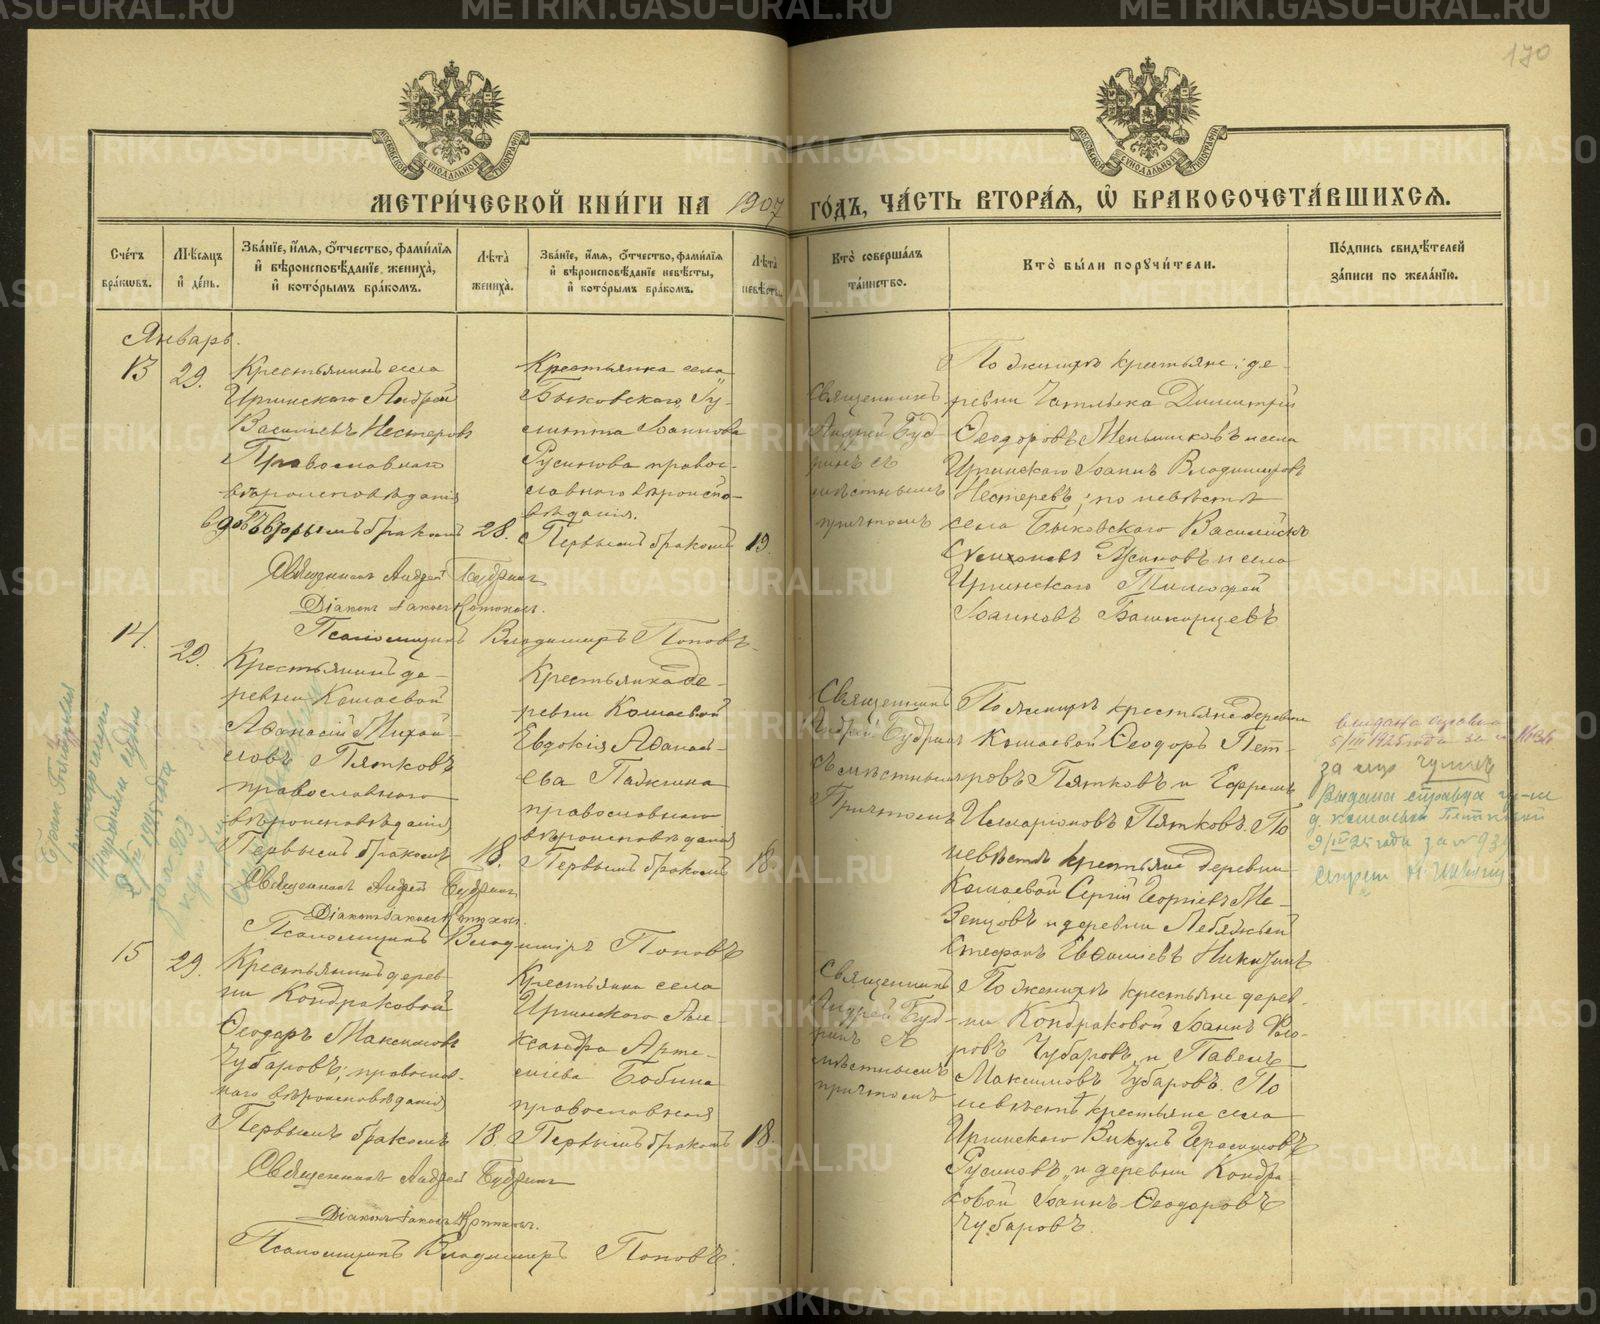 170
МЕТРИ́ЧЕСКОЙ КНИ́ГИ НА 1907 ГО́ДЪ, ЧА́СТЬ ВТОРА́Я, Ѽ БРАКОСОЧЕТА́ВШИХСЯ.
Сче́тъ бра́кωвъ.
Мѣ́сяцъ и҆ де́нь.
Зва́нїе, и҆́мя, ѻ҆́тчество, фами́лїя и҆ вѣроисповѣ́данїе жениха̀, и҆ кото́рымъ бра́комъ.
Лѣ́та жениха̀.
Зва́нїе, и҆́мя, ѻ҆́тчество, фами́лїя и҆ вѣроисповѣ́данїе невѣ́сты, и҆ кото́рымъ бра́комъ.
Лѣ́та невѣ́сты.
Кто̀ соверша́лъ та́инство.
Кто̀ бы́ли порꙋчи́тели.
По́дпись свидѣ́телей за́писи по жела́нїю.
Январь.
13
29.
Крестьянинъ села
Иргинскаго Андрей
Васильевъ Нестеровъ
Православнаго
вѣроисповѣданія
Вторымъ бракомъ
28.
Крестьянка села
Быковскаго,
Іоаннова
Русинова правос-
лавнаго вѣроиспо-
вѣданія.
Первымъ бракомъ
19.
Священникъ
Андрей Буд-
ринъ съ
мѣстнымъ
причтомъ
По женихѣ крестьяне: де-
ревни Чатлыка Димитрій
Ѳеодоровъ Меньшиковъ и села
Иргинскаго Іоаннъ Владимировъ
Нестеревъ; по невѣстѣ
села Быковскаго Василискъ
Русиновъ и села
Иргинскаго Тимофей
Іоанновъ Башкирцевъ.
Священникъ Андрей Будринъ
Діаконъ Іаковъ
Псаломщикъ Владимиръ Поповъ.
14.
29.
Крестьянинъ де-
ревни Кошаевой
Аѳанасій Михай-
ловъ Пятковъ
православнаго
вѣроисповѣданія
Первымъ бракомъ
18.
Крестьянка де-
ревни Кошаевой
Евдокія Аѳанась-
ева
православнаго
вѣроисповѣданія
Первымъ бракомъ
18
Священникъ
Андрей Будринъ
съ мѣстнымъ
Причтомъ
По женихѣ крестьяне деревни
Кошаевой Ѳеодоръ Пет-
ровъ Пятковъ и Ефремъ
Илларіоновъ Пятковъ. По
невѣстѣ крестьяне деревни
Кошаевой Сергій Георгіевъ Ме-
зенцовъ и деревни Лебяжьей
Стефанъ Никизинъ
выдана справка
5/III 1925 года за №
за
Выдана справка
д. Кошаевой
9/III 25 года за №
Священникъ Андрей Будринъ
Діаконъ Іаковъ
Псаломщикъ Владимиръ Поповъ
15
29.
Крестьянинъ дерев-
ни Кондраковой
Ѳеодоръ Максимовъ
Чубаровъ, православ-
наго вѣроисповѣданія
Первымъ бракомъ
18.
Крестьянка села
Иргинскаго Але-
ксандра Арте-
міева Бобина
православная
Первымъ бракомъ
18.
Священникъ
Андрей Буд-
ринъ съ
мѣстнымъ
причтомъ
По женихѣ крестьяне дерев-
ни Кондраковой Іоаннъ
Чубаровъ и Павелъ
Максимовъ Чубаровъ. По
невѣстѣ крестьяне села
Иргинскаго Викулъ Герасимовъ
Русиновъ и деревни Кондра-
ковой Іоаннъ Ѳеодоровъ
Чубаровъ.
Священникъ Андрей Будринъ
Діаконъ Іаковъ
Псаломщикъ Владимиръ Поповъ.
METRIKI.GASO-URAL.RU